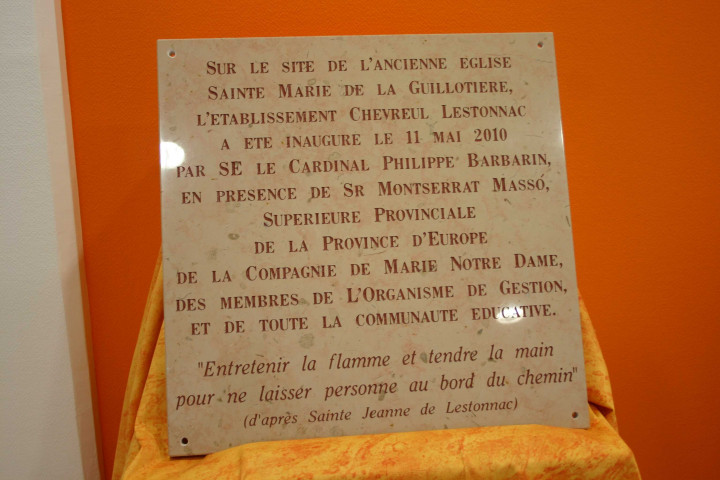 SUR LE SITE DE L'ANCIENNE EGLISE
SAINTE MARIE DE LA GUILLOTIERE,
L'ETABLISSEMENT CHEVREUL LESTONNAC
A ETE INAUGURE LE 11 MAI 2010
PAR SE LE CARDINAL PHILIPPE BARBARIN,
EN PRESENCE DE SR MONTSERRAT MASSÓ,
SUPERIEURE PROVINCIALE
DE LA PROVINCE D'EUROPE
DE LA COMPAGNIE DE MARIE NOTRE DAME,
DES MEMBRES DE L'ORGANISME DE GESTION,
ET DE TOUTE LA COMMUNAUTE EDUCATIVE.
"Entretenir la flamme et tendre la main
pour ne laisser personne au bord du chemin"
(d'après Sainte Jeanne de Lestonnac)